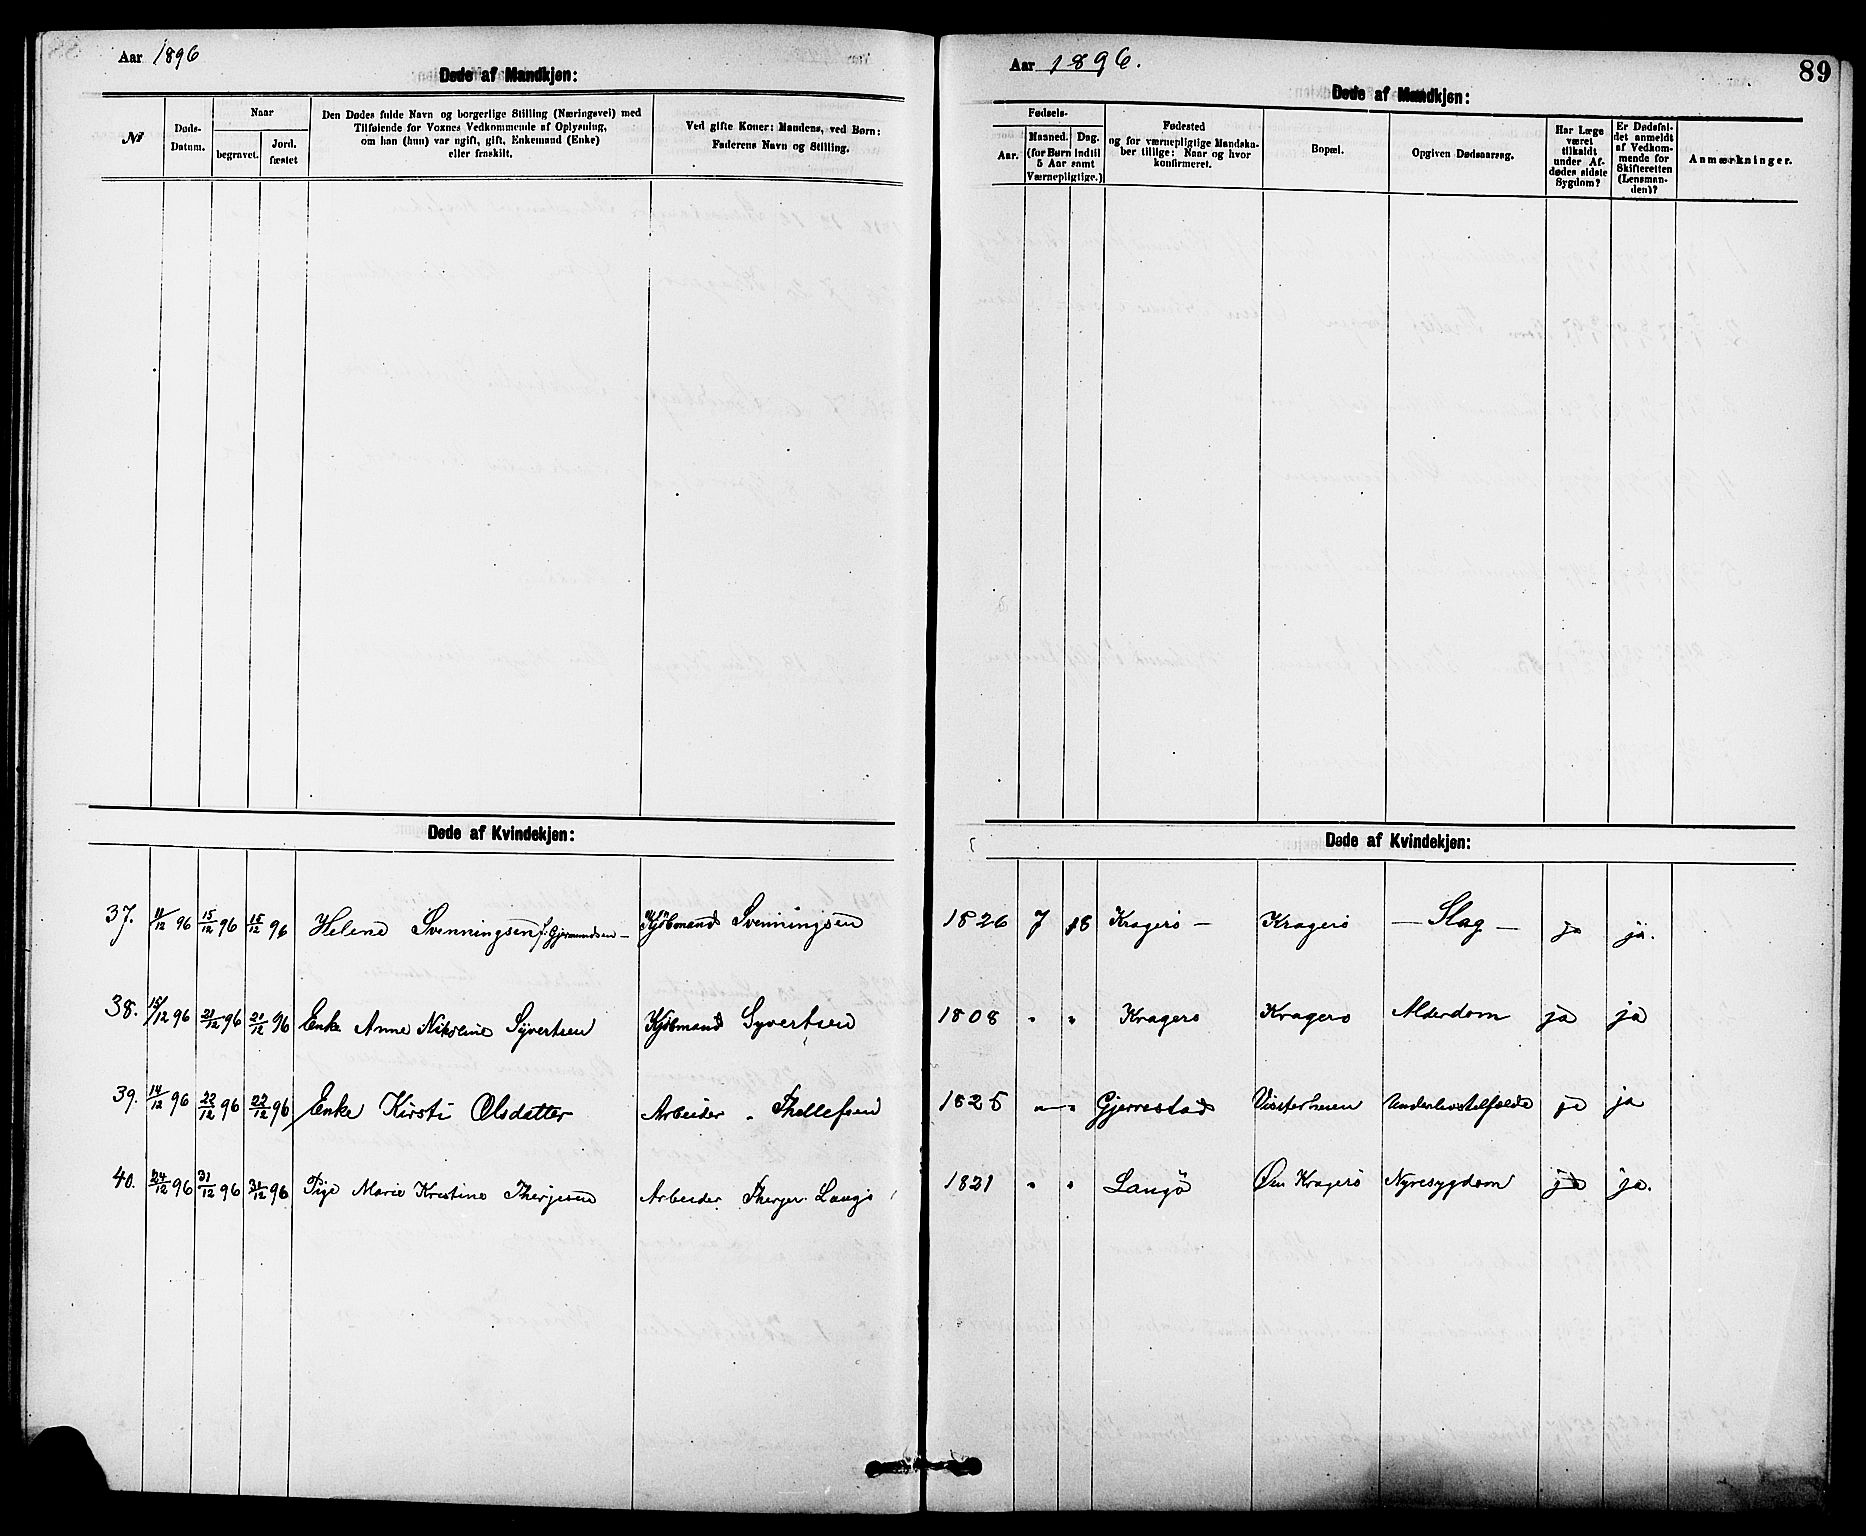 Aar 1896
Døde af Mandkjøn:
№
Døds-Datum.
Naar
begravet.
Jord. fæstet
Den Dødes fulde Navn og borgerlige Stilling (Næringsvei) med
Tilføiende for Voxnes Vedkommende af Oplysning,
om han (hun) var ugift, gift, Enkemand (Enke)
eller fraskilt.
Ved gifte Koner: Mandens, ved Børn:
Faderens Navn og Stilling.
Døde af Kvindekjøn:
37. 11/12 96 15/12 96 15/12 96 Helene Svenningsen f. Gjermundsen Kjöbmand Svenningsen
38. 15/12 96 21/12 96 21/12 96 Enke Anne Nikoline Syvertsen Kjöbmand Syvertsen
39. 14/12 96 22/12 96 22/12 96 Enke Kirsti Olsdatter Arbeider Thellefsen
40. 24/12 96 31/12 96 31/12 96 Pige Marie Kristine Therjesen Arbeider Langö
Aar 1896.
89
Døde af Mandkjøn:
Fødsels-
Aar.
Maaned. Dag.
(for Børn indtil
5 Aar samt
Værnepligtige.)
Fødested
og for værnepligtige Mandska-
ber tillige: Naar og hvor
konfirmeret.
Bopæl.
Opgiven Dødsaarsag.
Har Læge
været
tilkaldt
under Af-
dødes sidste
Sygdom?
Er Dødsfal-
det anmeldt
af Vedkom-
mende for
Skifteretten
(Lensman-
den)?
Anmærkninger.
Døde af Kvindekjøn:
1826 7 18 Kragerö — Kragerö — Slag — ja ja.
1808 " " Kragerö Kragerö Alderdom ja ja
1825 " " Gjerrestad Underlivstilfælde ja ja
1821 " " Langö Øen Kragerö Nyresygdom ja ja.